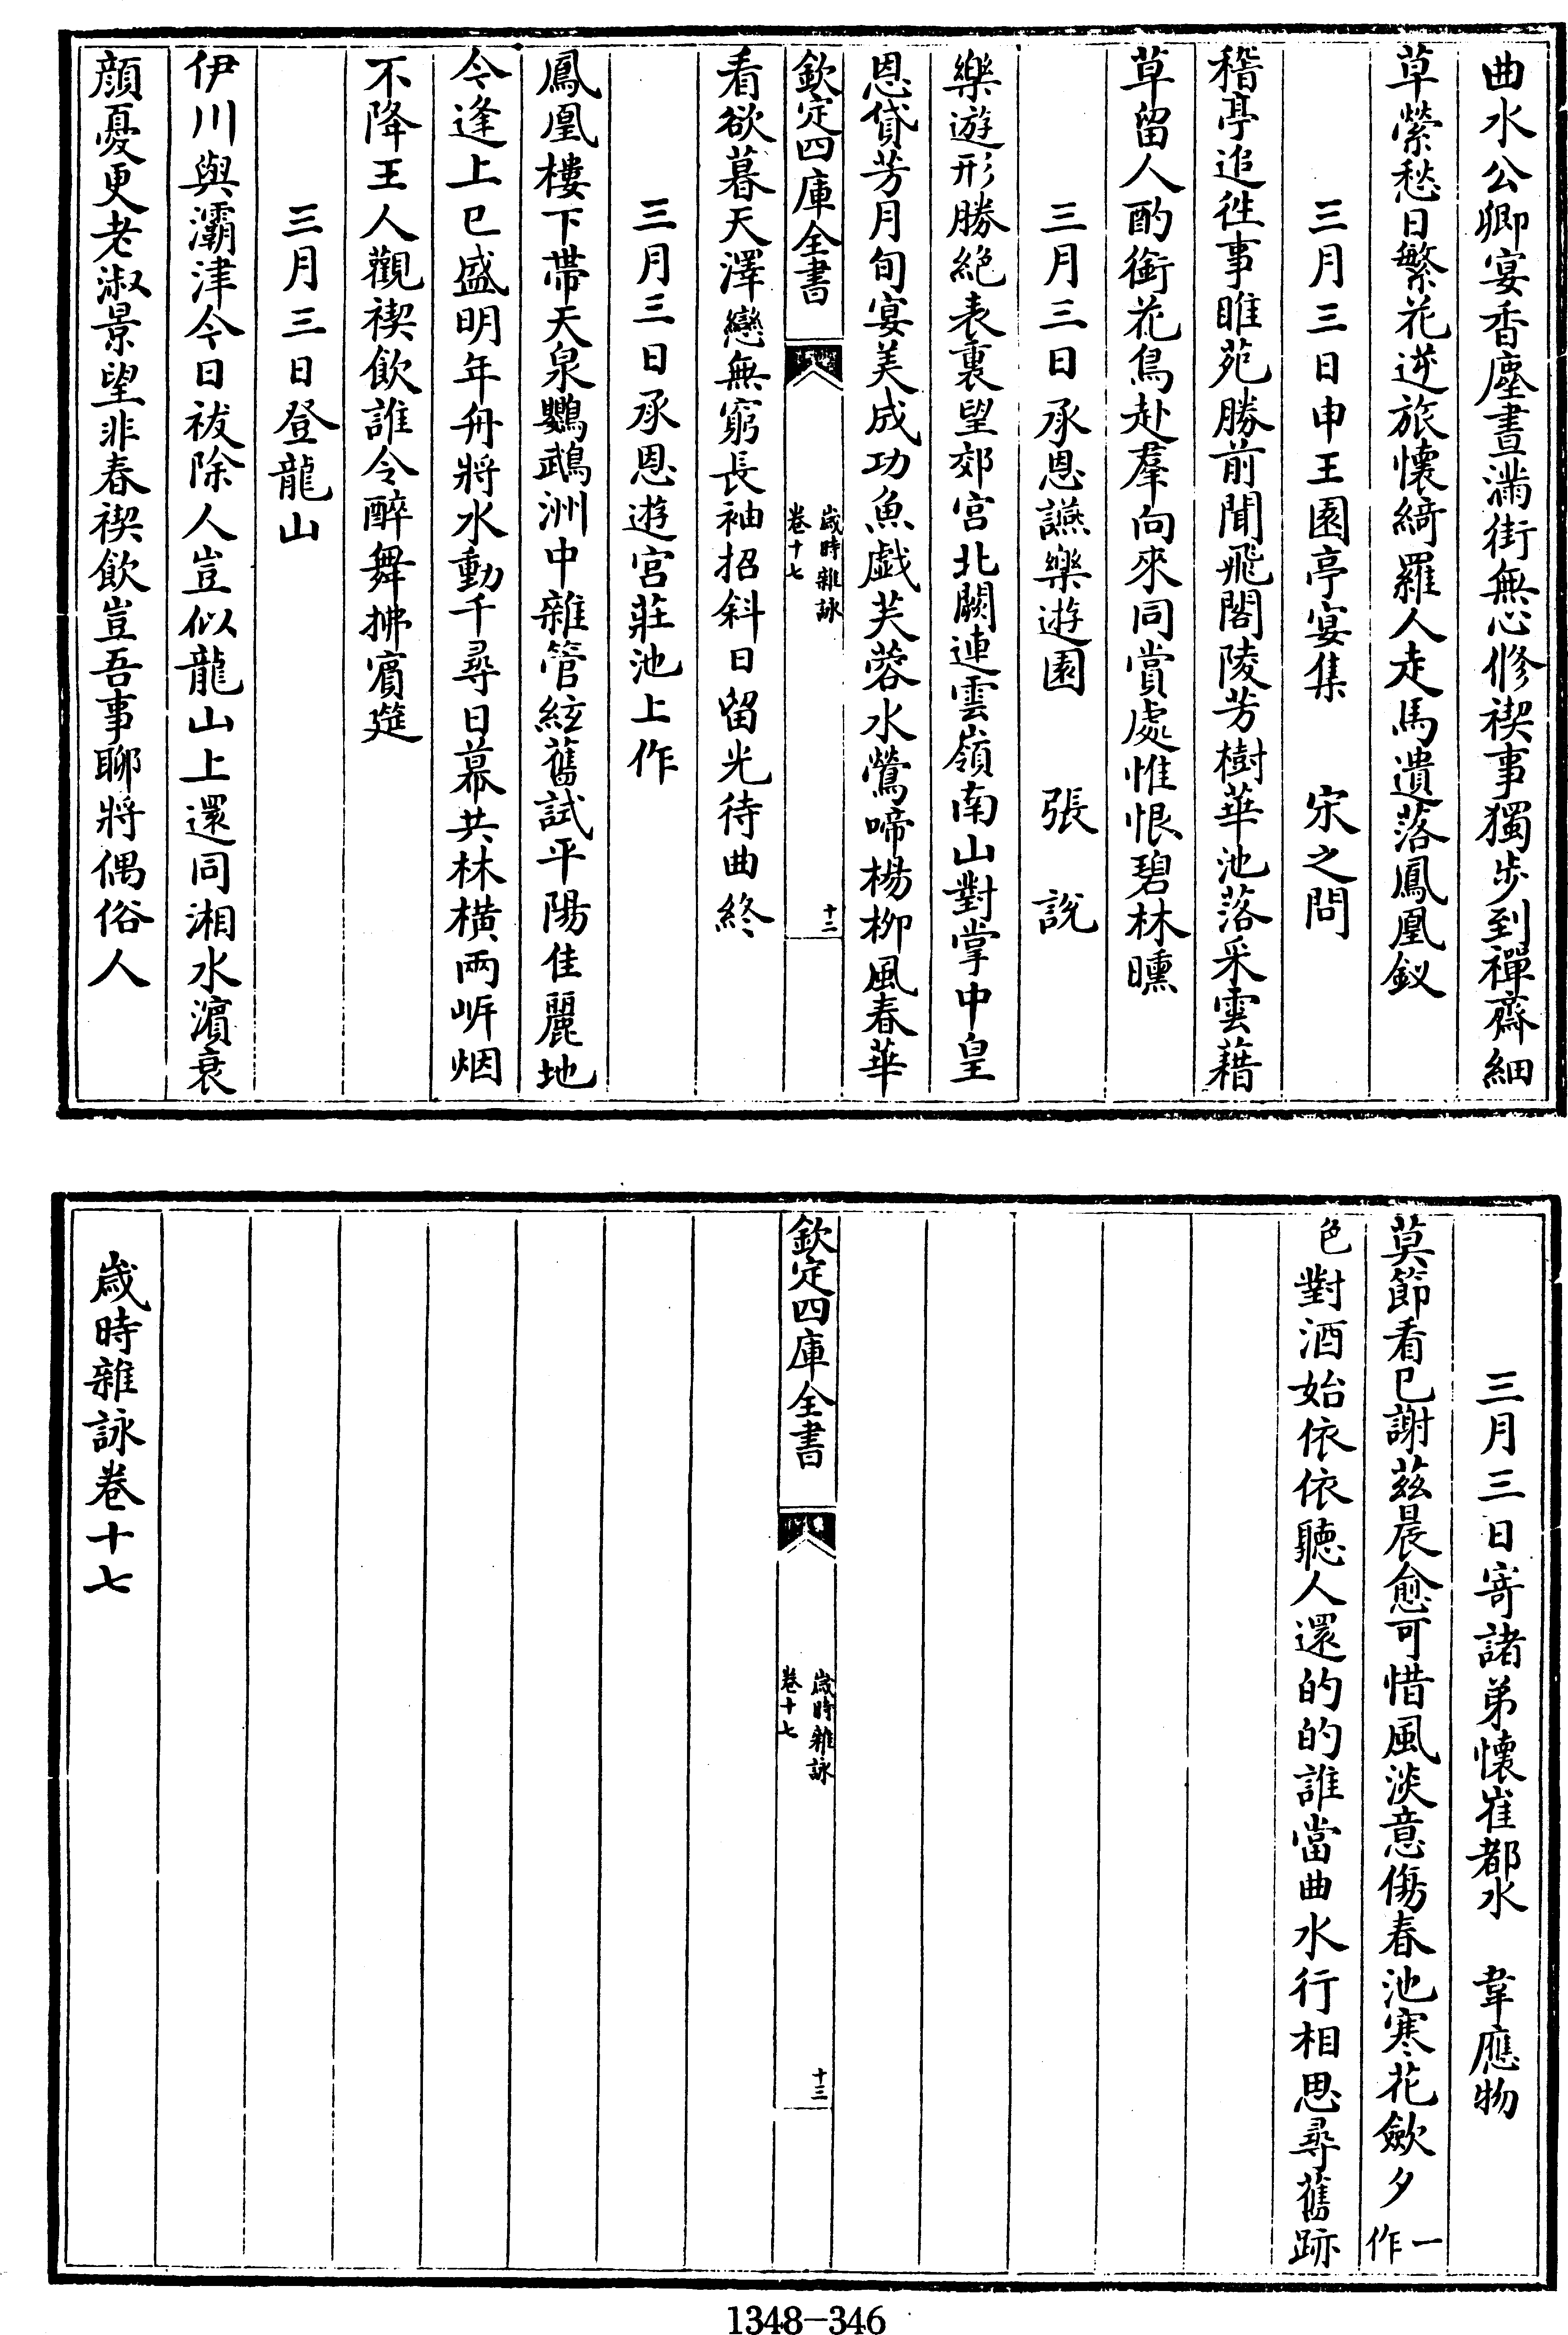 曲水公卿宴香塵晝滿街無心修禊事獨步到禪齋細
草縈愁目繁花逆旅懷綺羅人走馬遺落鳳凰釵
三月三日申王園亭宴集　宋之問
稽亭追徃事睢苑勝前聞飛閣陵芳樹華池落采雲藉
草留人酌銜花鳥赴羣向來同賞處惟恨碧林曛
三月三日承恩讌樂遊園　張說
樂遊形勝絶表裏望郊宮北闕連雲嶺南山對掌中皇
恩貸芳月旬宴美成功魚戲芙蓉水鶯啼楊柳風春華
欽定四庫全書　歲時雜詠　卷十七　十二
看欲暮天澤戀無窮長袖招斜日留光待曲終
三月三日承恩遊宮莊池上作
鳳凰樓下帶天泉鸚鵡洲中雜管絃舊試平陽佳麗地
今逢上巳盛明年舟將水動千尋日幕共林橫兩岍烟
不降王人觀禊飲誰令醉舞拂賓筵
三月三日登龍山
伊川與灞津今日祓除人豈似龍山上還同湘水濵衰
顔憂更老淑景望非春禊飲豈吾事聊將偶俗人
三月三日寄諸弟懷崔都水　韋應物
莫節看巳謝茲晨愈可惜風淡意傷春池寒花歛夕一作
色對酒始依依聽人還的的誰當曲水行相思尋舊跡
欽定四庫全書　歲時雜詠　卷十七　十三
歲時雜詠卷十七
1348-346